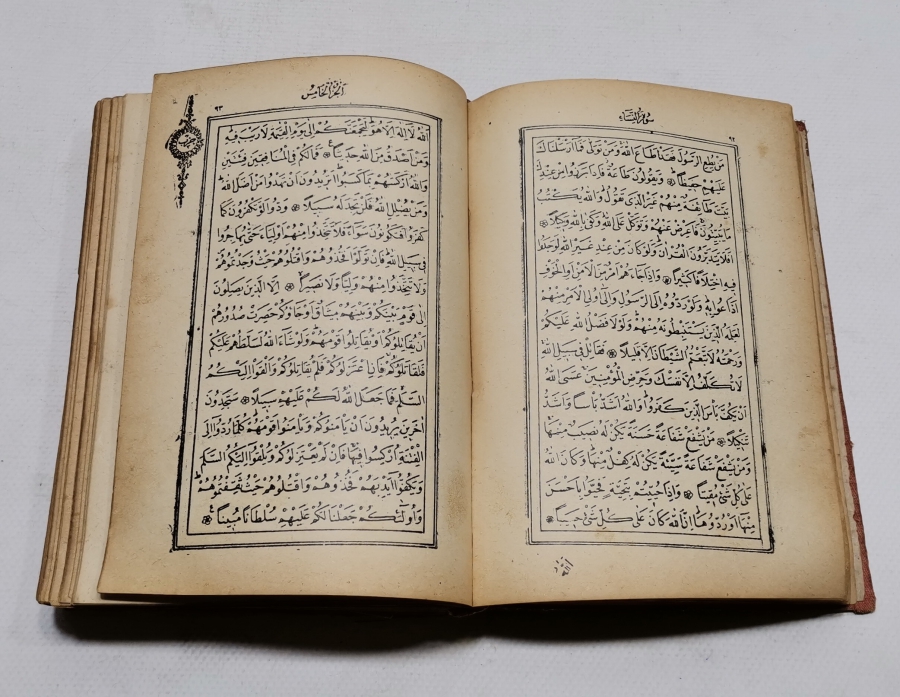 سُورَةُ النِّسَاءِ
٩٢
مَنْ يُطِعِ الرَّسُولَ فَقَدْ اَطَاعَ اللّٰهَ وَمَنْ تَوَلّٰى فَمَٓا اَرْسَلْنَاكَ
عَلَيْهِمْ حَفِيظاً ۞ وَيَقُولُونَ طَاعَةٌ فَاِذَا بَرَزُوا مِنْ عِنْدِكَ
بَيَّتَ طَٓائِفَةٌ مِنْهُمْ غَيْرَ الَّذِى تَقُولُ وَاللّٰهُ يَكْتُبُ
مَا يُبَيِّتُونَ فَاَعْرِضْ عَنْهُمْ وَتَوَكَّلْ عَلَى اللّٰهِ وَكَفٰى بِاللّٰهِ وَكِيلاً ۞
اَفَلَا يَتَدَبَّرُونَ الْقُرْاٰنَ وَلَوْ كَانَ مِنْ عِنْدِ غَيْرِ اللّٰهِ لَوَجَدُوا
فِيهِ اخْتِلَافاً كَثِيراً ۞ وَاِذَا جَٓاءَهُمْ اَمْرٌ مِنَ الْاَمْنِ اَوِ الْخَوْفِ
اَذَاعُوا بِهِ وَلَوْ رَدُّوهُ اِلَى الرَّسُولِ وَاِلٰٓى اُولِى الْاَمْرِ مِنْهُمْ
لَعَلِمَهُ الَّذِينَ يَسْتَنْبِطُونَهُ مِنْهُمْ وَلَوْلَا فَضْلُ اللّٰهِ عَلَيْكُمْ
وَرَحْمَتُهُ لَاتَّبَعْتُمُ الشَّيْطَانَ اِلَّا قَلِيلاً ۞ فَقَاتِلْ فِى سَبِيلِ اللّٰهِ
لَا تُكَلَّفُ اِلَّا نَفْسَكَ وَحَرِّضِ الْمُؤْمِنِينَ عَسَى اللّٰهُ
اَنْ يَكُفَّ بَأْسَ الَّذِينَ كَفَرُوا وَاللّٰهُ اَشَدُّ بَأْساً وَاَشَدُّ
تَنْكِيلاً ۞ مَنْ يَشْفَعْ شَفَاعَةً حَسَنَةً يَكُنْ لَهُ نَصِيبٌ مِنْهَا
وَمَنْ يَشْفَعْ شَفَاعَةً سَيِّئَةً يَكُنْ لَهُ كِفْلٌ مِنْهَا وَكَانَ اللّٰهُ
عَلٰى كُلِّ شَىْءٍ مُقِيتاً ۞ وَاِذَا حُيِّيتُمْ بِتَحِيَّةٍ فَحَيُّوا بِاَحْسَنَ
مِنْهَٓا اَوْ رُدُّوهَا اِنَّ اللّٰهَ كَانَ عَلٰى كُلِّ شَىْءٍ حَسِيباً ۞
اَلْجُزْءُ الْخَامِسُ
٩٣
اَللّٰهُ لَٓا اِلٰهَ اِلَّا هُوَ لَيَجْمَعَنَّكُمْ اِلٰى يَوْمِ الْقِيٰمَةِ لَا رَيْبَ فِيهِ
وَمَنْ اَصْدَقُ مِنَ اللّٰهِ حَدِيثاً ۞ فَمَا لَكُمْ فِى الْمُنَافِقِينَ فِئَتَيْنِ
وَاللّٰهُ اَرْكَسَهُمْ بِمَا كَسَبُوا اَتُرِيدُونَ اَنْ تَهْدُوا مَنْ اَضَلَّ اللّٰهُ
وَمَنْ يُضْلِلِ اللّٰهُ فَلَنْ تَجِدَ لَهُ سَبِيلاً ۞ وَدُّوا لَوْ تَكْفُرُونَ كَمَا
كَفَرُوا فَتَكُونُونَ سَوَٓاءً فَلَا تَتَّخِذُوا مِنْهُمْ اَوْلِيَٓاءَ حَتّٰى يُهَاجِرُوا
فِى سَبِيلِ اللّٰهِ فَاِنْ تَوَلَّوْا فَخُذُوهُمْ وَاقْتُلُوهُمْ حَيْثُ وَجَدْتُمُوهُمْ
وَلَا تَتَّخِذُوا مِنْهُمْ وَلِيّاً وَلَا نَصِيراً ۞ اِلَّا الَّذِينَ يَصِلُونَ
اِلٰى قَوْمٍ بَيْنَكُمْ وَبَيْنَهُمْ مِيثَاقٌ اَوْ جَٓاؤُكُمْ حَصِرَتْ صُدُورُهُمْ
اَنْ يُقَاتِلُوكُمْ اَوْ يُقَاتِلُوا قَوْمَهُمْ وَلَوْ شَٓاءَ اللّٰهُ لَسَلَّطَهُمْ عَلَيْكُمْ
فَلَقَاتَلُوكُمْ فَاِنِ اعْتَزَلُوكُمْ فَلَمْ يُقَاتِلُوكُمْ وَاَلْقَوْا اِلَيْكُمُ
السَّلَمَ فَمَا جَعَلَ اللّٰهُ لَكُمْ عَلَيْهِمْ سَبِيلاً ۞ سَتَجِدُونَ
اٰخَرِينَ يُرِيدُونَ اَنْ يَأْمَنُوكُمْ وَيَأْمَنُوا قَوْمَهُمْ كُلَّمَا رُدُّٓوا اِلَى
الْفِتْنَةِ اُرْكِسُوا فِيهَا فَاِنْ لَمْ يَعْتَزِلُوكُمْ وَيُلْقُٓوا اِلَيْكُمُ السَّلَمَ
وَيَكُفُّٓوا اَيْدِيَهُمْ فَخُذُوهُمْ وَاقْتُلُوهُمْ حَيْثُ ثَقِفْتُمُوهُمْ
وَاُولٰٓئِكُمْ جَعَلْنَا لَكُمْ عَلَيْهِمْ سُلْطَاناً مُبِيناً ۞